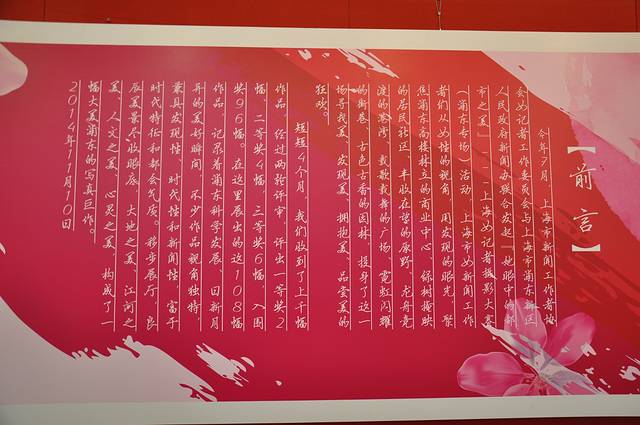 【前言】
今年7月，上海市新闻工作者协
会女记者工作委员会与上海市浦东新区
人民政府新闻办联合发起“她眼中的都
市之美”——上海女记者摄影大赛
（浦东专场）活动。上海市女新闻工作
者们从女性的视角，用发现的眼光，聚
焦浦东高楼林立的商业中心，绿树掩映
的居民社区，丰收在望的原野，龙舟竞
渡的港湾，载歌载舞的广场，霓虹闪耀
的街巷，古色古香的园林，投身了这一
场寻找美、发现美、拥抱美、品尝美的
狂欢。
短短4个月，我们收到了上千幅
作品，经过两轮评审，评出一等奖2
幅，二等奖4幅，三等奖6幅，入围
奖96幅。在这里展出的这108幅
作品，记录着浦东科学发展、日新月
异的美好瞬间，不少作品视角独特，
兼具发现性、时代性和新闻性，富于
时代特征和都会气质。移步展厅，良
辰美景尽收眼底，大地之美、江河之
美、人文之美、心灵之美，构成了一
幅大美浦东的写真巨作。
2014年11月10日